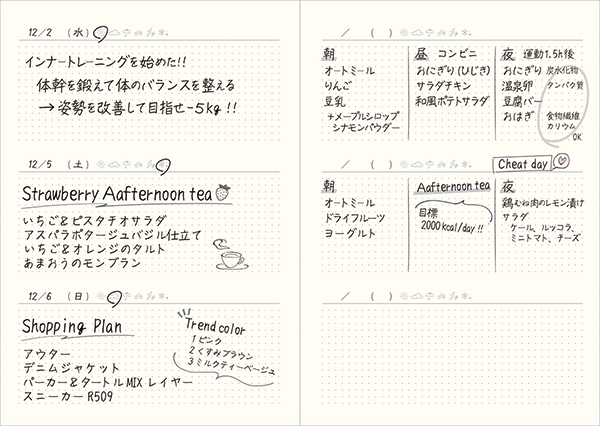 12/2 (水)
インナートレーニングを始めた!!
体幹を鍛えて体のバランスを整える
→姿勢を改善して目指せ-5kg!!
12/5 (土)
Strawberry Aafternoon tea
いちご&ピスタチオサラダ
アスパラポタージュバジル仕立て
いちご&オレンジのタルト
あまおうのモンブラン
12/6 (日)
Shopping Plan
アウター
デニムジャケット
パーカー&タートルMIX レイヤー
スニーカー R509
Trend color
1 ピンク
2 くすみブラウン
3 ミルクティーベージュ
/ ( )
朝
オートミール
りんご
豆乳
+メープルシロップ
シナモンパウダー
昼 コンビニ
おにぎり(ひじき)
サラダチキン
和風ポテトサラダ
夜 運動1.5h後
おにぎり 炭水化物
温泉卵 タンパク質
豆腐バー
おはぎ 食物繊維
カリウム
OK
/ ( )
Cheat day
朝
オートミール
ドライフルーツ
ヨーグルト
Aafternoon tea
目標
2000kcal/day!!
夜
鶏むね肉のレモン漬け
サラダ
ケール、ルッコラ、
ミニトマト、チーズ
/ ( )